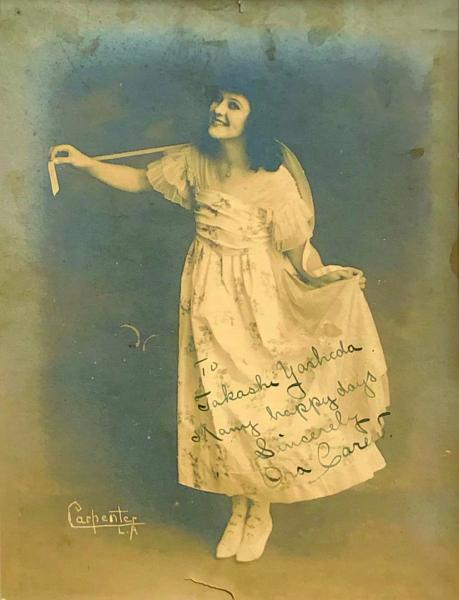 To
Takashi Yoshida
Many happy days
Sincerely
Ora Carew.
Carpenter
L.A